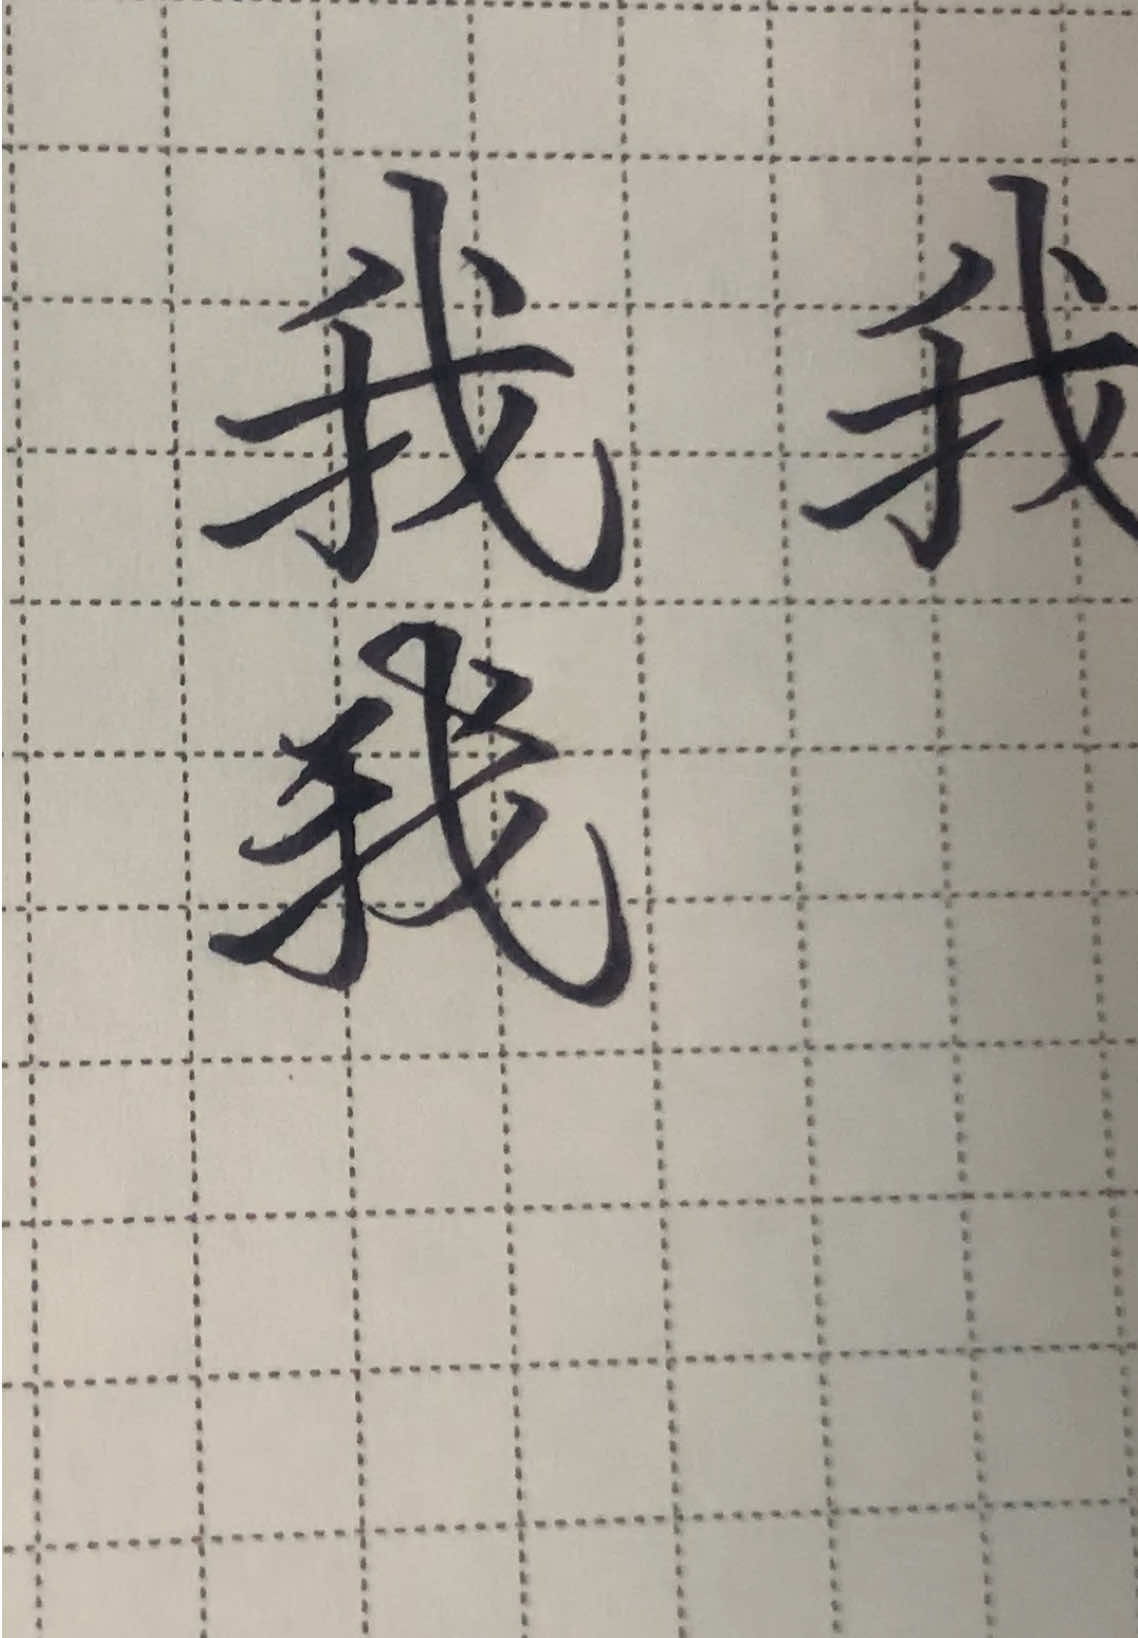 我 我
我